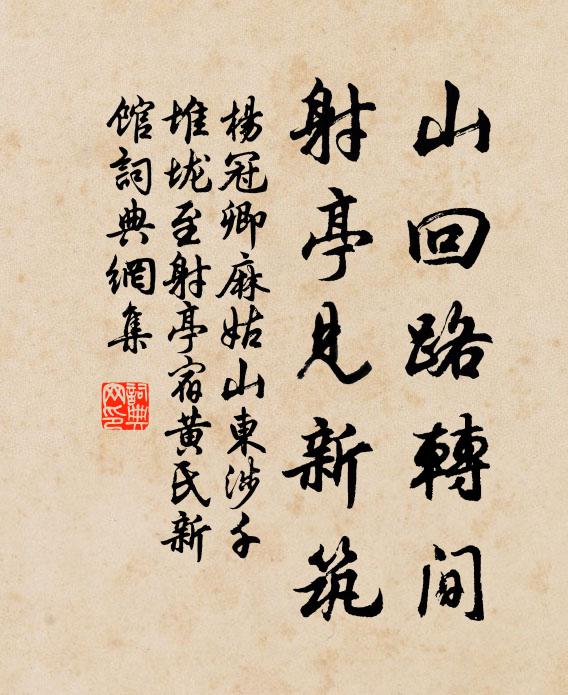 山回路轉間
射亭見新筑
楊冠卿麻姑山東涉千
堆垅至射亭宿黄氏新
馆詞典網集
詞典
网印